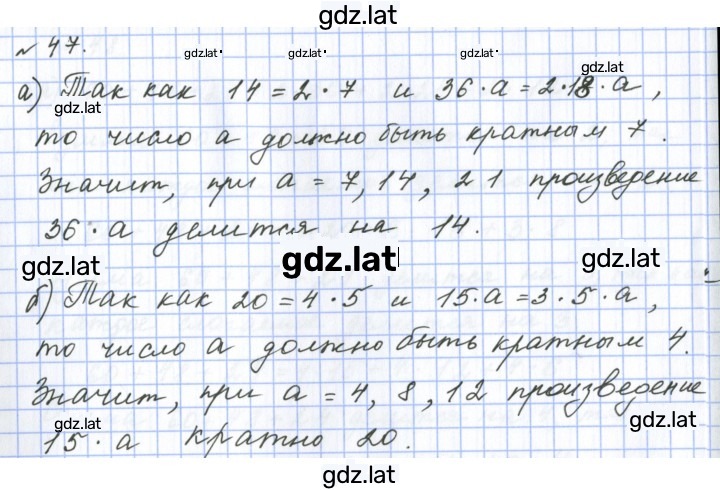 gdz.lat
№ 47.
gdz.lat gdz.lat gdz.lat
gdz.lat
а) Так как 14 = 2 · 7 и 36 · а = 2 · 18 · а ,
gdz.lat
то число а должно быть кратным 7 .
Значит, при а = 7, 14 , 21 произведение
36 · а делится на 14.
gdz.lat gdz.lat gdz.lat
б) Так как 20 = 4 · 5 и 15 · а = 3 · 5 · а ,
то число а должно быть кратным 4.
Значит, при а = 4, 8 , 12 произведение
gdz.lat gdz.lat
15 · а кратно 20.
gdz.lat